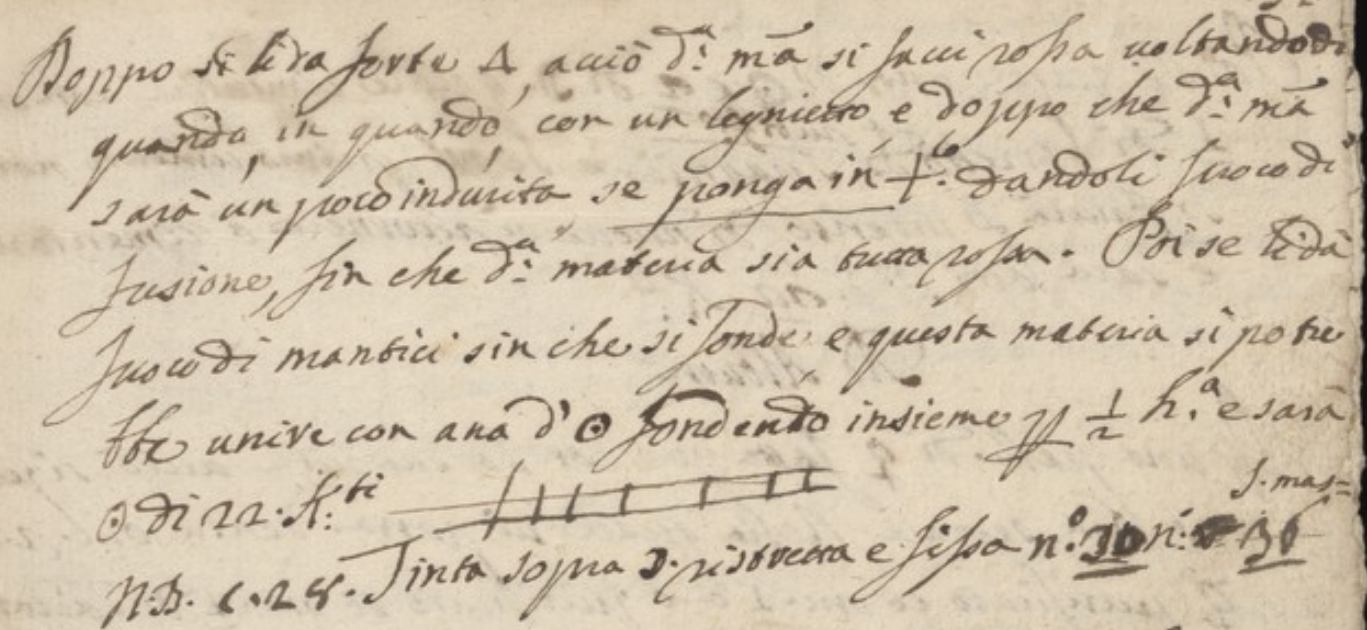 Doppo se li da forte 🜂, acciò d.ª mã si facci rossa voltando di
quando, in quando, con un legnietto e doppo che d.ª mã
sarà un poco indurita se ponga in +.º dandoli fuoco di
fusione, sin che d.ª materia sia tutta rossa. Poi se li dà
fuoco di mantici sin che si fonde e questa materia si potre
bbe unire con ana d' ☉ fondendo insieme p ½ h.ª e sarà
☉ di 22. K.ti
S. mas=
N.B. c. 28. Tinta sopra ☽. ristretta e fissa n.º 30 n. 36